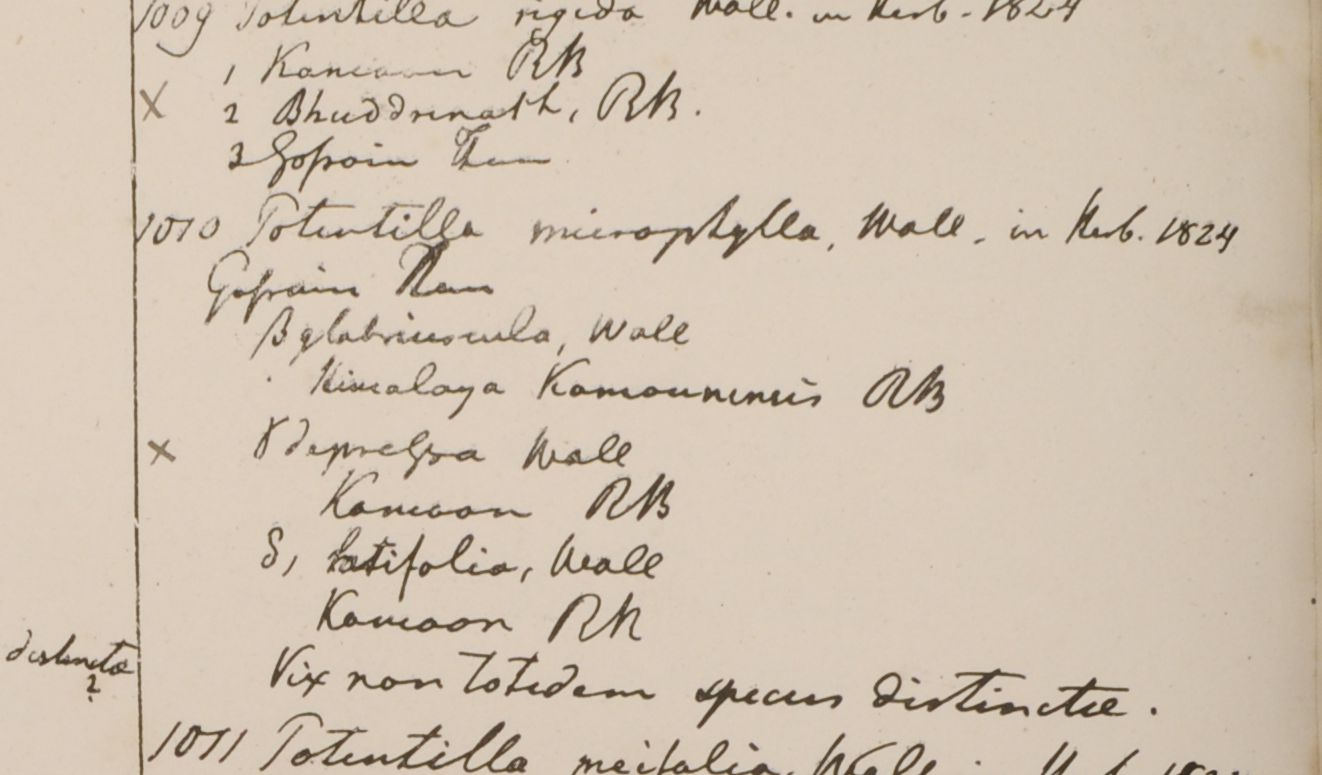 1009 Potentilla rigida Wall. in Herb. 1824
1 Kamaon RB
X 2 Bhuddrinath, RB.
3 Gosain Than
1010 Potentilla microphylla, Wall. in Herb. 1824
Gosain Than
β glabriuscula, Wall
Himalaya Kamounensis RB
X γ depressa Wall
Kamaon RB
δ, latifolia, Wall
Kamaon RB
distinctæ
?
Vix non totidem species distinctæ.
1011 Potentilla meifolia, Wall